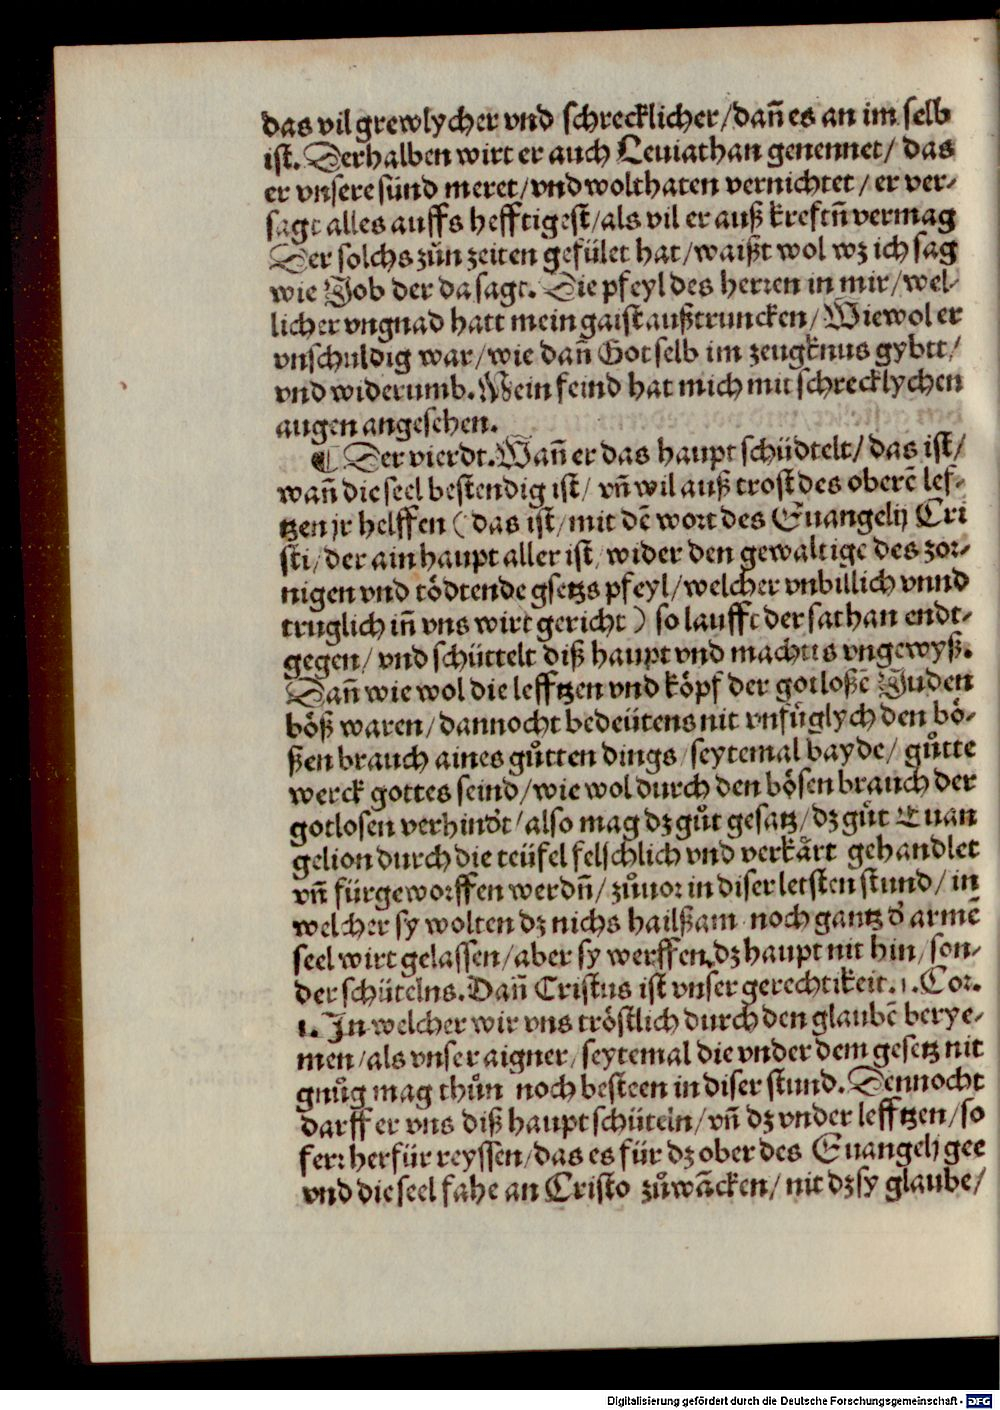 das vil grewlycher vnd schrecklicher/dañ es an im selb
ist. Derhalben wirt er auch Leuiathan genennet/ das
er vnsere sünd meret/vnd wolthaten vernichtet/er ver-
sagt alles auffs hefftigest/als vil er auß kreftñ vermag
Der solchs zůn zeiten gefület hat/waißt wol wz ich sag
wie Job der da sagt. Die pfeyl des herren in mir/wel-
licher vngnad hatt mein gaist außtruncken/Wiewol er
vnschuldig war/wie dañ Got selb im zeugknus gybtt/
vnd widerumb. Mein feind hat mich mit schrecklychen
augen angesehen.
¶ Der vierdt. Wañ er das haupt schüdtelt/das ist/
wañ die seel bestendig ist/ vñ wil auß trost des oberē lef-
tzen jr helffen (das ist/mit dē wort des Euangelij Cri
sti/der ain haupt aller ist/wider den gewaltige des zor-
nigen vnd tödtende gsetzs pfeyl/welcher vnbillich vnnd
truglich iñ vns wirt gericht) so laufft der sathan endt-
gegen/ vnd schüttelt diß haupt vnd machts vngewyß.
Dañ wie wol die lefftzen vnd köpf der gotloßē Juden
böß waren/dannocht bedeütens nit vnfüglych den bö-
ßen brauch aines gůtten dings/seytemal bayde/ gůtte
werck gottes seind/wie wol durch den bösen brauch der
gotlosen verhindt/also mag dz gůt gesatz/dz gůt Euan
gelion durch die teüfel felschlich vnd verkärt gehandlet
vñ fürgeworffen werdñ/zůuor in diser letsten stund/in
welcher sy wolten dz nichs hailßam noch gantz d' armē
seel wirt gelassen/aber sy werffen dz haupt nit hin/son-
der schütelns. Dañ Cristus ist vnser gerechtikeit. 1. Cor.
1. In welcher wir vns tröstlich durch den glaubē berye-
men/als vnser aigner/seytemal die vnder dem gesetz nit
gnůg mag thůn noch besteen in diser stund. Dennocht
darff er vns diß haupt schüteln/vñ dz vnder lefftzen/so
ferr herfür reyssen/das es für dz ober des Euangelj gee
vnd die seel fahe an Cristo zůwācken/nit dz sy glaube/
Digitalisierung gefördert durch die Deutsche Forschungsgemeinschaft - DFG